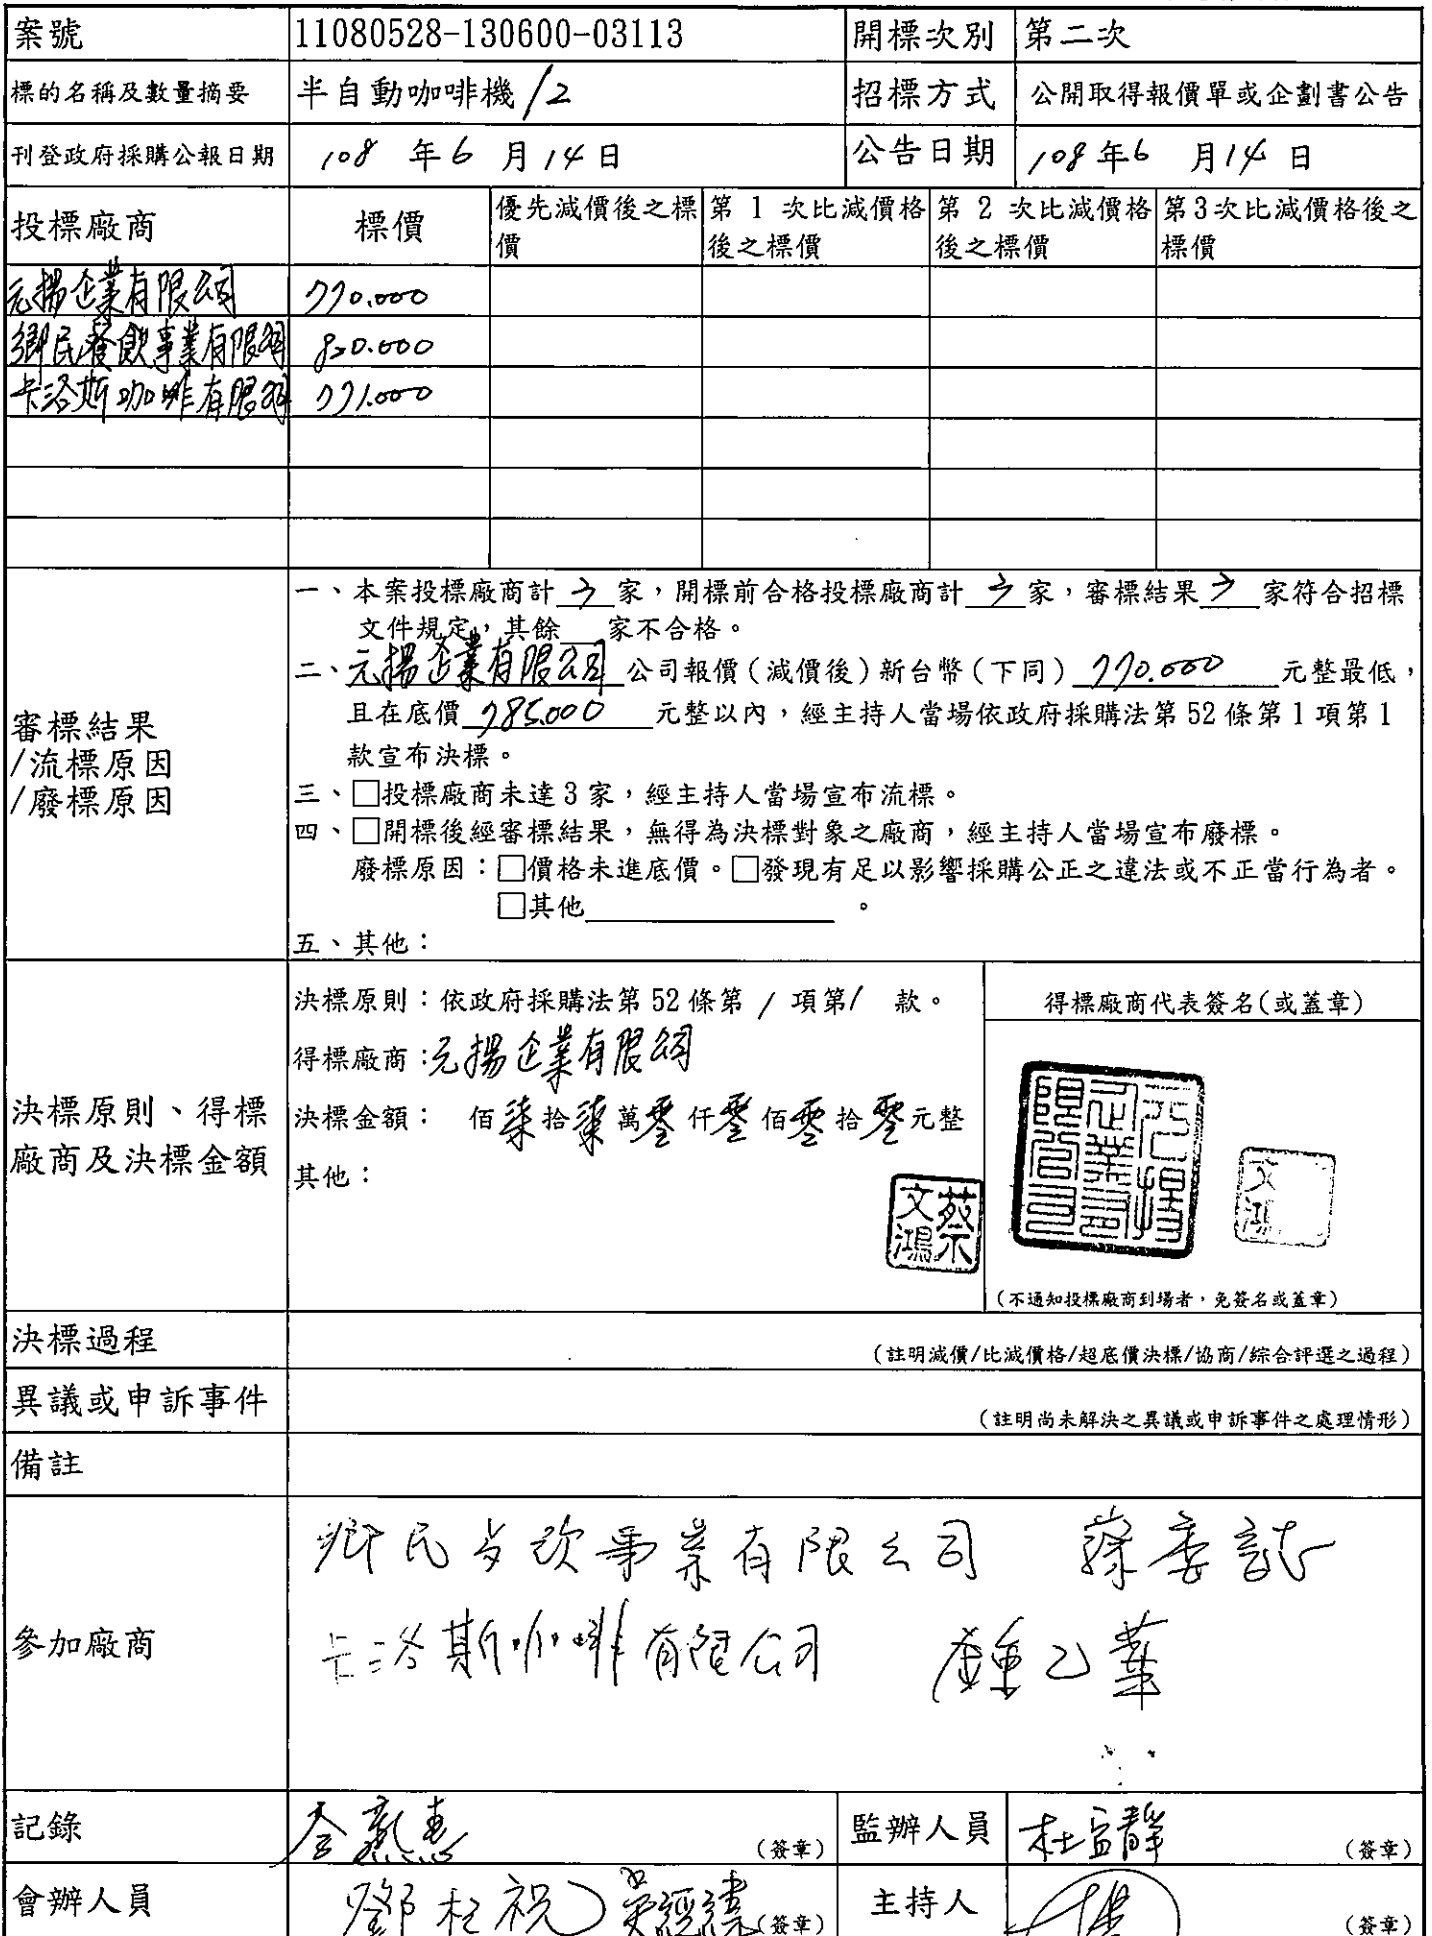 案號 11080528-130600-03113 開標次別 第二次
標的名稱及數量摘要 半自動咖啡機/2 招標方式 公開取得報價單或企劃書公告
刊登政府採購公報日期 108 年 6 月 14 日 公告日期 108 年 6 月 14 日
投標廠商 標價 優先減價後之標價 第 1 次比減價格後之標價 第 2 次比減價格後之標價 第3次比減價格後之標價
元揚企業有限公司 770.000
鄉民餐飲事業有限公司 820.000
卡洛斯咖啡有限公司 771.000
審標結果
/流標原因
/廢標原因
一、本案投標廠商計 3 家，開標前合格投標廠商計 3 家，審標結果 3 家符合招標
文件規定，其餘 家不合格。
二、元揚企業有限公司 公司報價(減價後)新台幣(下同) 770.000 元整最低，
且在底價 785.000 元整以內，經主持人當場依政府採購法第 52 條第 1 項第 1
款宣布決標。
三、□投標廠商未達 3 家，經主持人當場宣布流標。
四、□開標後經審標結果，無得為決標對象之廠商，經主持人當場宣布廢標。
廢標原因：□價格未進底價。□發現有足以影響採購公正之違法或不正當行為者。
□其他 。
五、其他：
決標原則、得標
廠商及決標金額
決標原則：依政府採購法第 52 條第 1 項第 1 款。
得標廠商：元揚企業有限公司
決標金額： 佰柒拾柒萬零仟零佰零拾零元整
其他：
蔡文鴻
得標廠商代表簽名(或蓋章)
元揚企業有限公司
文鴻
(不通知投標廠商到場者，免簽名或蓋章)
決標過程 (註明減價/比減價格/超底價決標/協商/綜合評選之過程)
異議或申訴事件 (註明尚未解決之異議或申訴事件之處理情形)
備註
參加廠商
鄉民歺飲事業有限公司
卡洛斯咖啡有限公司 鍾乙華
記錄 (簽章) 監辦人員 (簽章)
會辦人員 (簽章) 主持人 (簽章)